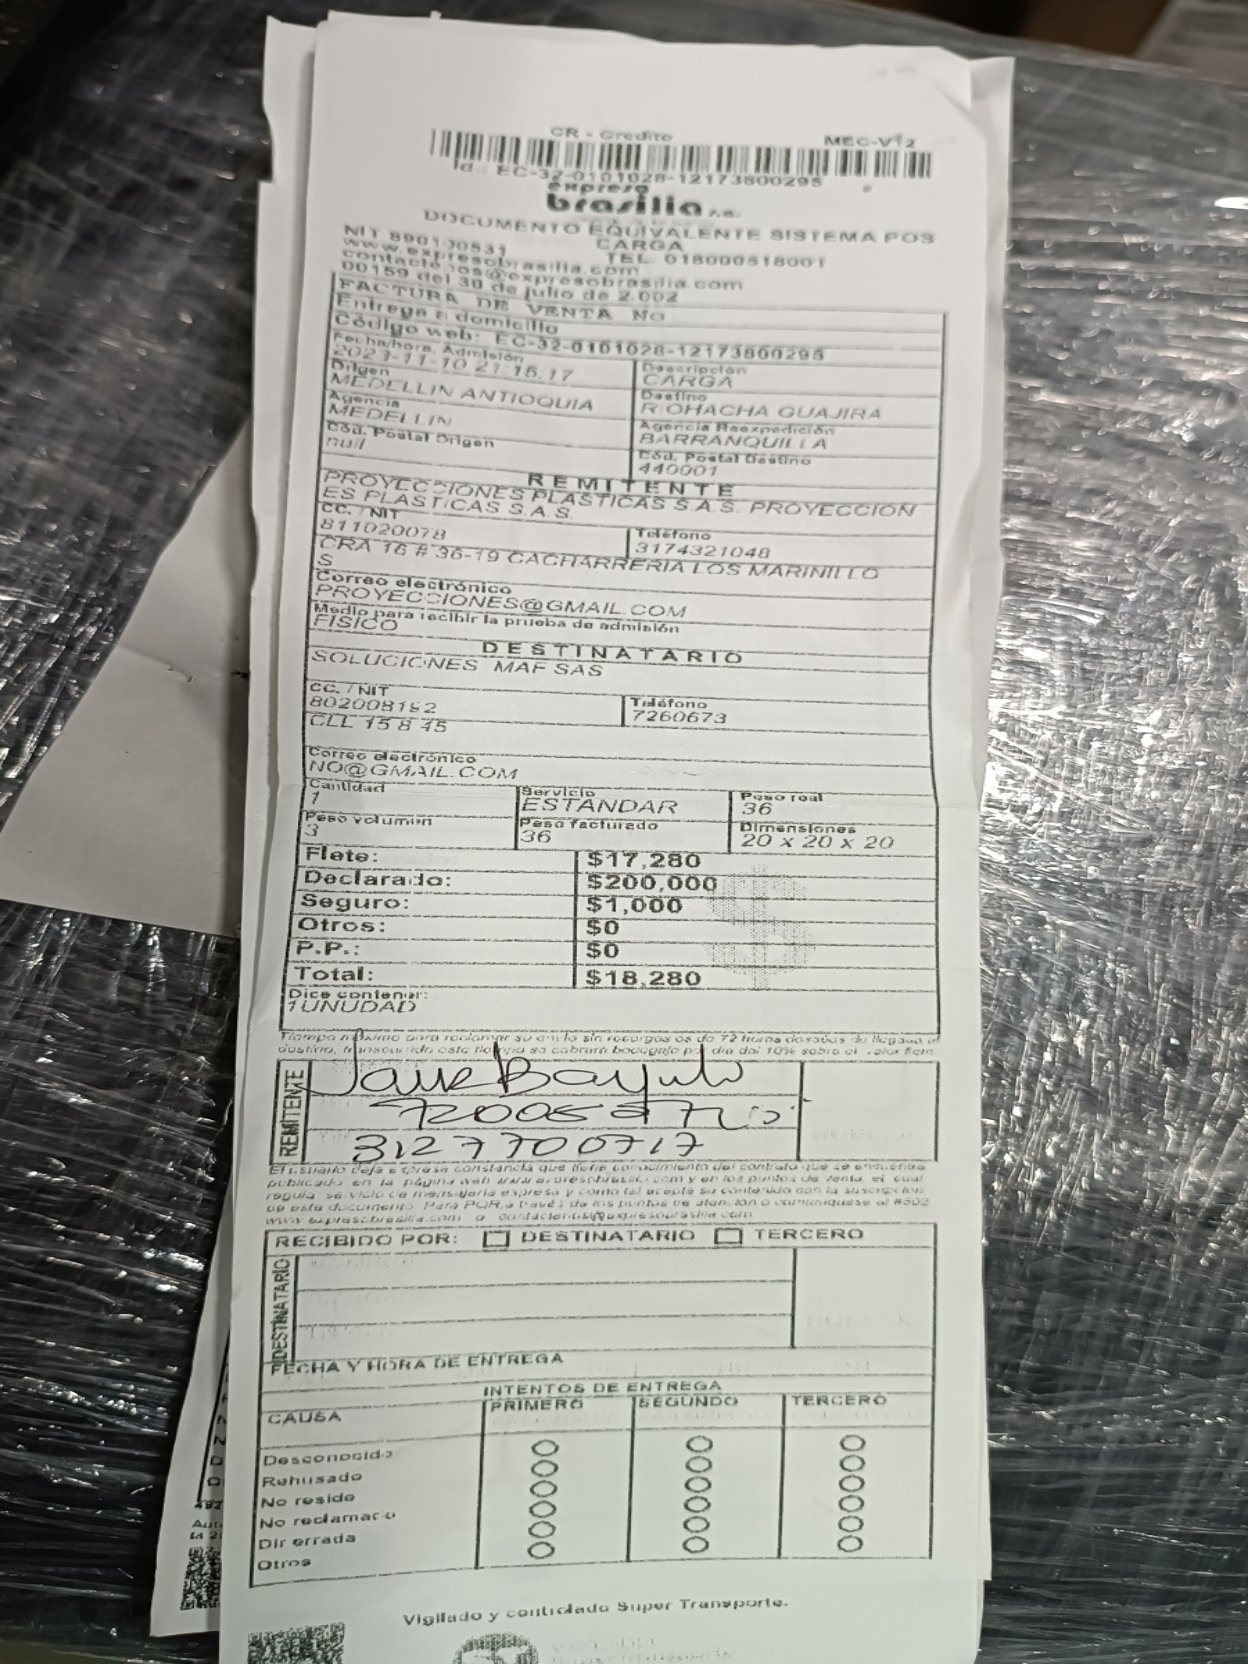 CR - Credito MEC-V12
Id.: EC-32-0101028-12173800295
expreso
brasilia s.a.
DOCUMENTO EQUIVALENTE SISTEMA POS
CARGA
NIT 890100531 TEL. 018000518001
www.expresobrasilia.com
contactenos@expresobrasilia.com
00159 del 30 de julio de 2.002
FACTURA DE VENTA No
Entrega a domicilio
Código web: EC-32-0101028-12173800295
Fecha/hora. Admisión Descripción
2023-11-10 21:15:17 CARGA
Origen Destino
MEDELLIN ANTIOQUIA RIOHACHA GUAJIRA
Agencia Agencia Reexpedición
MEDELLIN BARRANQUILLA
Cód. Postal Origen Cód. Postal Destino
null 440001
REMITENTE
PROYECCIONES PLASTICAS S.A.S. PROYECCION
ES PLASTICAS S.A.S.
CC. / NIT Teléfono
811020078 3174321048
CRA 16 # 36-19 CACHARRERIA LOS MARINILLO
S
Correo electrónico
PROYECCIONES@GMAIL.COM
Medio para recibir la prueba de admisión
FISICO
DESTINATARIO
SOLUCIONES MAF SAS
CC. / NIT Teléfono
802008192 7260673
CLL 15 8 45
Correo electrónico
NO@GMAIL.COM
Cantidad Servicio Peso real
1 ESTANDAR 36
Peso volumen Peso facturado Dimensiones
3 36 20 x 20 x 20
Flete: $17,280
Declarado: $200,000
Seguro: $1,000
Otros: $0
P.P.: $0
Total: $18,280
Dice contener:
1UNUDAD
Tiempo máximo para reclamar su envío sin recargos es de 72 horas después de llegada al
destino, transcurrido este tiempo se cobrará bodegaje por día del 10% sobre el valor flete
REMITENTE
3127700717
El usuario deja expresa constancia que tiene conocimiento del contrato que se encuentra
publicado en la página web www.expresobrasilia.com y en los puntos de venta, el cual
regula servicio de mensajería expresa y como tal acepta su contenido con la suscripción
de este documento. Para PQR a través de los puntos de atención o comuníquese al #502
www.expresobrasilia.com o contactenos@expresobrasilia.com
RECIBIDO POR: DESTINATARIO TERCERO
DESTINATARIO
FECHA Y HORA DE ENTREGA
INTENTOS DE ENTREGA
CAUSA PRIMERO SEGUNDO TERCERO
Desconocido
Rehusado
No reside
No reclamado
Dir errada
Otros
Vigilado y controlado Super Transporte.